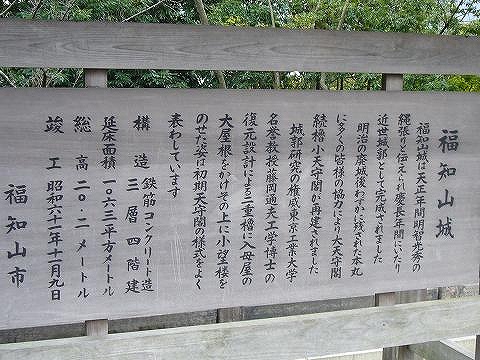 福知山城
福知山城は天正年間明智光秀の
縄張りと伝えられ慶長年間にいたり
近世城郭として完成されました
明治の廃城後わずかに残された本丸
に多くの皆様の協力により大天守閣
続櫓小天守閣が再建されました
城郭研究の権威東京工業大学
名誉教授藤岡通夫工学博士の
復元設計による三重櫓に入母屋の
大屋根をかけその上に小望楼を
のせた姿は初期天守閣の様式をよく
表わしています
構造 鉄筋コンクリート造
三層四階建
延床面積 一〇六三平方メートル
総高 二〇・二メートル
竣工 昭和六十一年十一月九日
福知山市